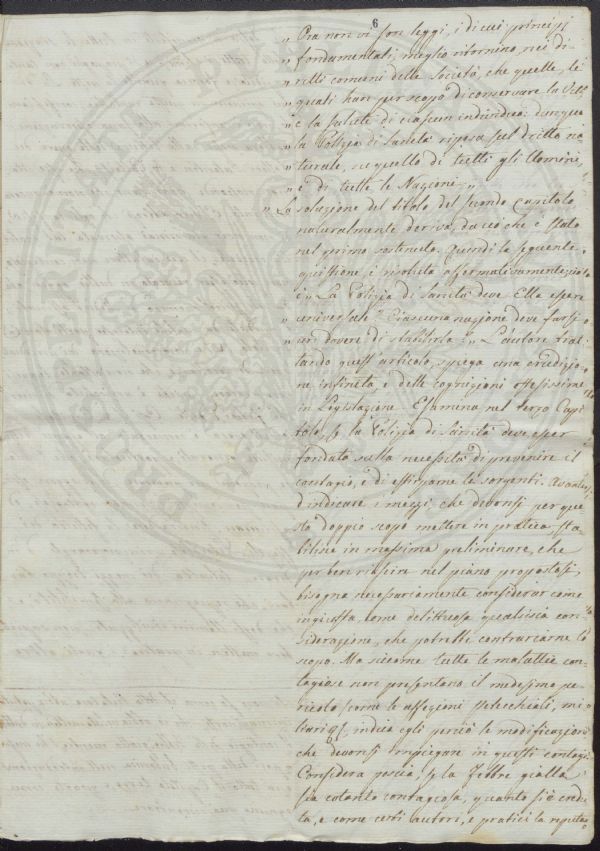 6
„ Ora non vi son leggi, i di cui principj
„ fondamentali, meglio ritornino, nei di-
„ ritti comuni delle Società, che quelle, le
„ quali han per scopo di conservare la
„ e la salute di ciascun individuo: dunque
„ la Polizia di Sanità riposa sul dritto na-
„ turale, su quello di tutti gli Uomini,
„ e di tutte le Nazioni. „
„ La soluzione del titolo del secondo Capitolo
naturalmente deriva, da ciò che è stato
nel primo sostenuto. Quindi la seguente
quistione, è risoluta affermativamente
„ La Polizia di Sanità deve Ella essere
„ universale? Ciascuna nazione deve farsi
„ un dovere di stabilirla? „ L'autore trat-
tando quest'articolo, spiega una erudizio-
ne infinita e delle cognizioni estesissime
in Legislazione. Esamina nel terzo Capi-
tolo, se la Polizia di Sanità deve esser
fondata sulla necessità di prevenire il
contagio, e di estirparne le sorgenti. Avanti
d'indicare i mezzi, che devonsi per que-
sto doppio scopo mettere in pratica sta-
bilisce in massima preliminare, che
per ben riuscire nel piano propostosi,
bisogna necessariamente considerar come
ingiusta, come delittuosa qualsisia con-
siderazione, che potrebbe contrariarne lo
scopo. Ma siccome tutte le malattie con-
tagiose non presentano il medesimo pe-
ricolo come le affezioni petecchiali, mi-
liari indica egli perciò le modificazioni
che devonsi impiegare in questi contagi.
Considera poscia, se la Febbre gialla
sia cotanto contagiosa, quanto si è credu-
ta, e come certi autori, e pratici la